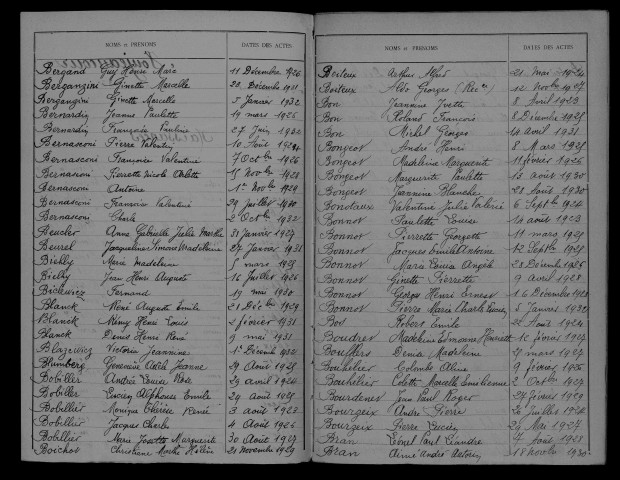 NOMS et PRÉNOMS DATES DES ACTES
Bergand Guy Henri Marc 11 Décembre 1926
Berganzini Ginette Marcelle 28 Décembre 1931
Berganzini Ginette Marcelle 5 Janvier 1932
Bernardin Jeanne Paulette 19 mars 1926
Bernardin Françoise Pauline 27 Juin 1932
Bernasconi Pierre Valentin 10 Août 1924
Bernasconi Françoise Valentine 7 Octobre 1926
Bernasconi Pierrette Nicole Arlette 15 Novbre 1928
Bernasconi Antoine 1er Novbre 1929
Bernasconi François Valentine 29 Juillet 1930
Bernasconi Charles 2 Octbre 1932
Beucler Anne Gabrielle Julie Marthe 31 Janvier 1927
Beurel Jacqueline Simone Madeleine 27 Janvier 1931
Bichly Marie Madeleine 5 mars 1925
Bichly Jean Henri Auguste 16 Juillet 1926
Bickewez Fernand 19 mai 1930
Blanck René Auguste Emile 21 Décbre 1929
Blanck Rémy Henri Louis 2 février 1931
Blanck Denis Henri René 9 mai 1931
Blazewicz Victoria Jeannine 1er Décemb 1932
Blumberg Geneviève Adèle Jeanne 29 Avril 1925
Bobillier Andrée Louise Rose 29 avril 1924
Bobillier Lucien Alphonse Emile 24 Août 1925
Bobillier Monique Thérèse Renée 3 août 1923
Bobillier Jacques Charles 4 Août 1926
Bobillier Marie Josette Marguerite 30 Août 1927
Boichot Christiane Marthe Hélène 21 Novembre 1929
NOMS et PRÉNOMS DATES DES ACTES
Boiteux Arthur Alfred 21 mai 1924
Boiteux Aldo Georges (Rec ce) 12 Novbre 1927
Bon Jeannine Yvette 8 Avril 1923
Bon Roland François 8 Décembre 1928
Bon Michel Georges 14 Avril 1931
Bongeot André Henri 8 Mars 1925
Bongeot Madeleine Marguerite 11 février 1926
Bongeot Marguerite Paulette 13 août 1930
Bongeot Jeannine Blanche 28 Août 1930
Bonotaux Valentine Julie Valérie 6 Septbre 1924
Bonnot Paulette Louise 10 août 1923
Bonnot Pierrette Georgette 11 mars 1925
Bonnot Jacques Emile Antoine 12 Septbre 1925
Bonnot Marie Louise Angèle 23 Décembre 1926
Bonnot Ginette Pierrette 9 avril 1928
Bonnot Georges Henri Ernest 16 Décembre 1928
Bonnot Pierre Marie Charles Lucien 5 Janvier 1932
Bos Robert Emile 22 Août 1924
Boudret Madeleine Edmonne Henriette 10 février 1927
Boufflers Denise Madeleine 7 mars 1927
Bouhelier Colombe Aline 9 février 1926
Bouhelier Colette Marcelle 2 Octbre 1927
Bourdenet Jean Paul Roger 27 février 1929
Bourgeix André Pierre 20 Juillet 1924
Bourgeix Pierre Lucien 24 Mai 1927
Bran Lionel Paul Léandre 7 Août 1928
Bran Aimé André Antoine 18 Novbre 1930